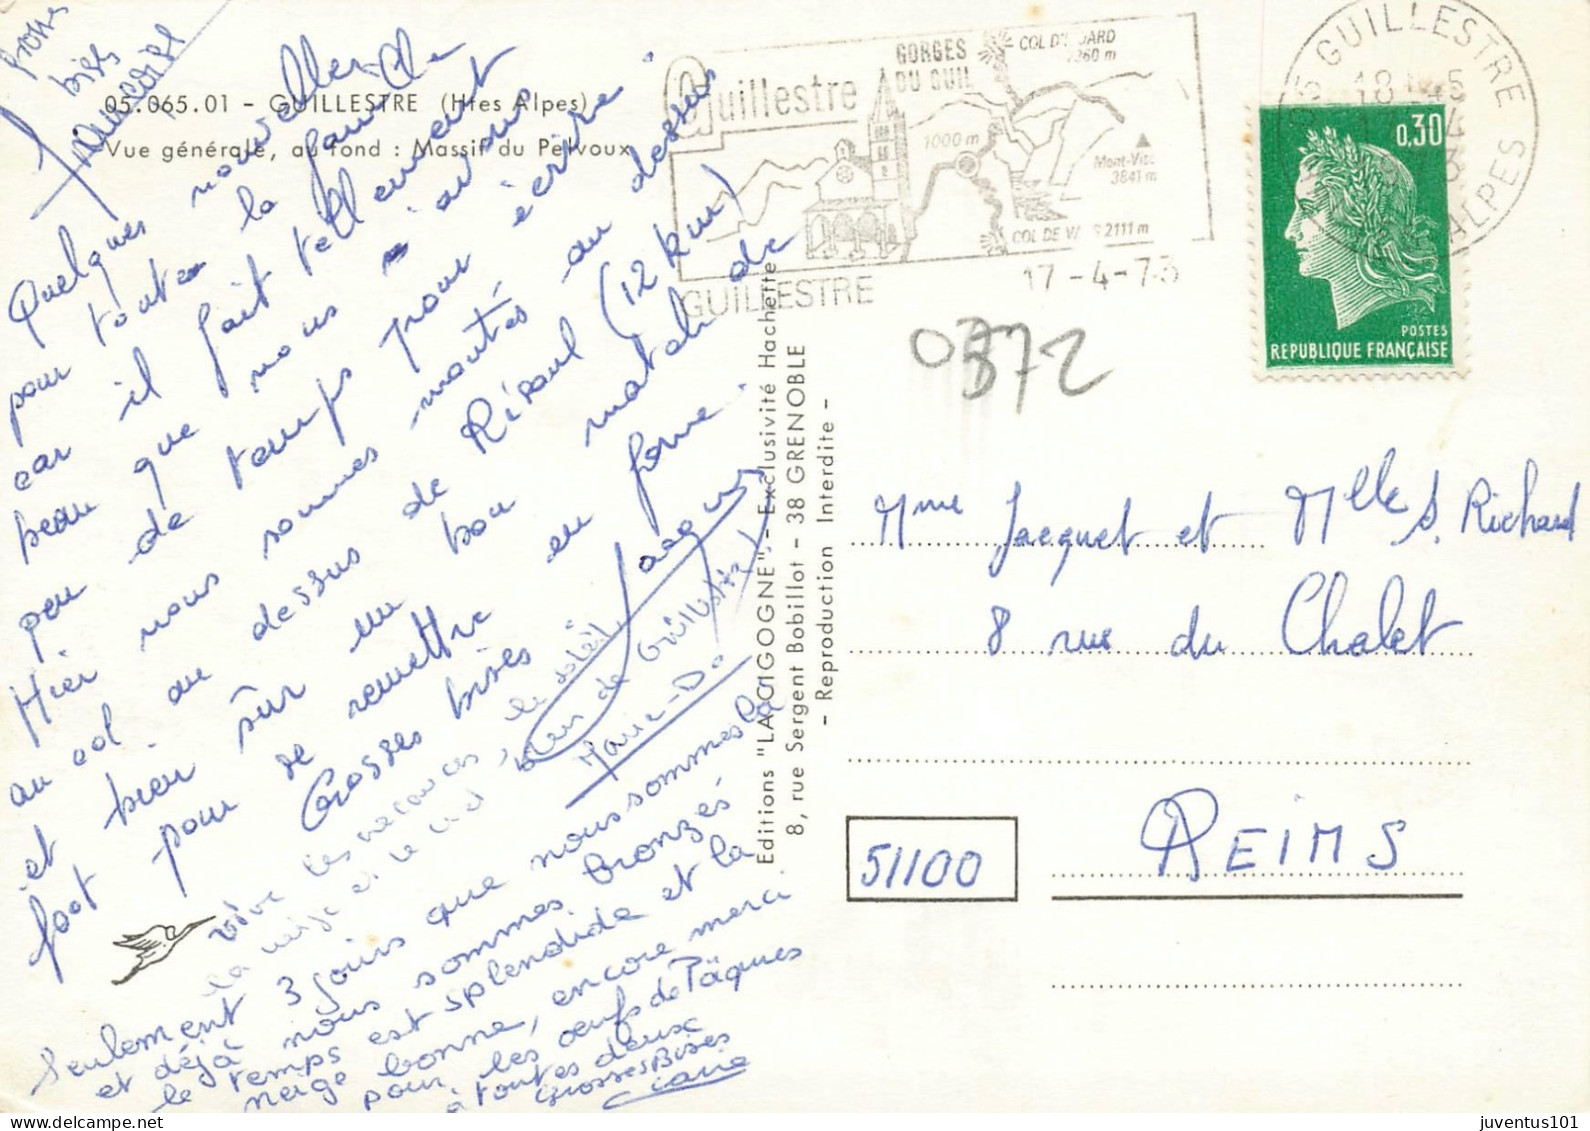 Grosses
bises
Françoise
05.065.01 - GUILLESTRE (Htes Alpes)
Vue générale, au fond : Massif du Pelvoux
Quelques nouvelles de
pour toute la famille
car il fait tellement
beau que nous avons
peu de temps pour écrire
Hier nous sommes montés au dessus
au col au dessus de Risoul (12 km)
et bien sûr un bon match de
foot pour se remettre en forme.
Grosses bises
Jacques
Vive les vacances, le soleil,
la neige et le
bien de Guillestre!
Marie-Do
Seulement 3 jours que nous sommes là
et déjà nous sommes bronzés
le temps est splendide et la
neige bonne, encore merci
pour les œufs de Pâques
à toutes deux
Grosses Bises
Claire
Editions "LA CIGOGNE" - Exclusivité Hachette
8, rue Sergent Bobillot - 38 GRENOBLE
- Reproduction Interdite -
Guillestre
GORGES
DU GUIL
COL D'IZOARD
2360 m
1000 m
Mont-Viso
3841 m
COL DE VARS 2111 m
GUILLESTRE
17 -4-73
05 GUILLESTRE
18 H45
ALPES
0,30
POSTES
REPUBLIQUE FRANÇAISE
0372
Mme Jacquet et Mlle S. Richard
8 rue du Chalet
51100
REIMS
juventus101